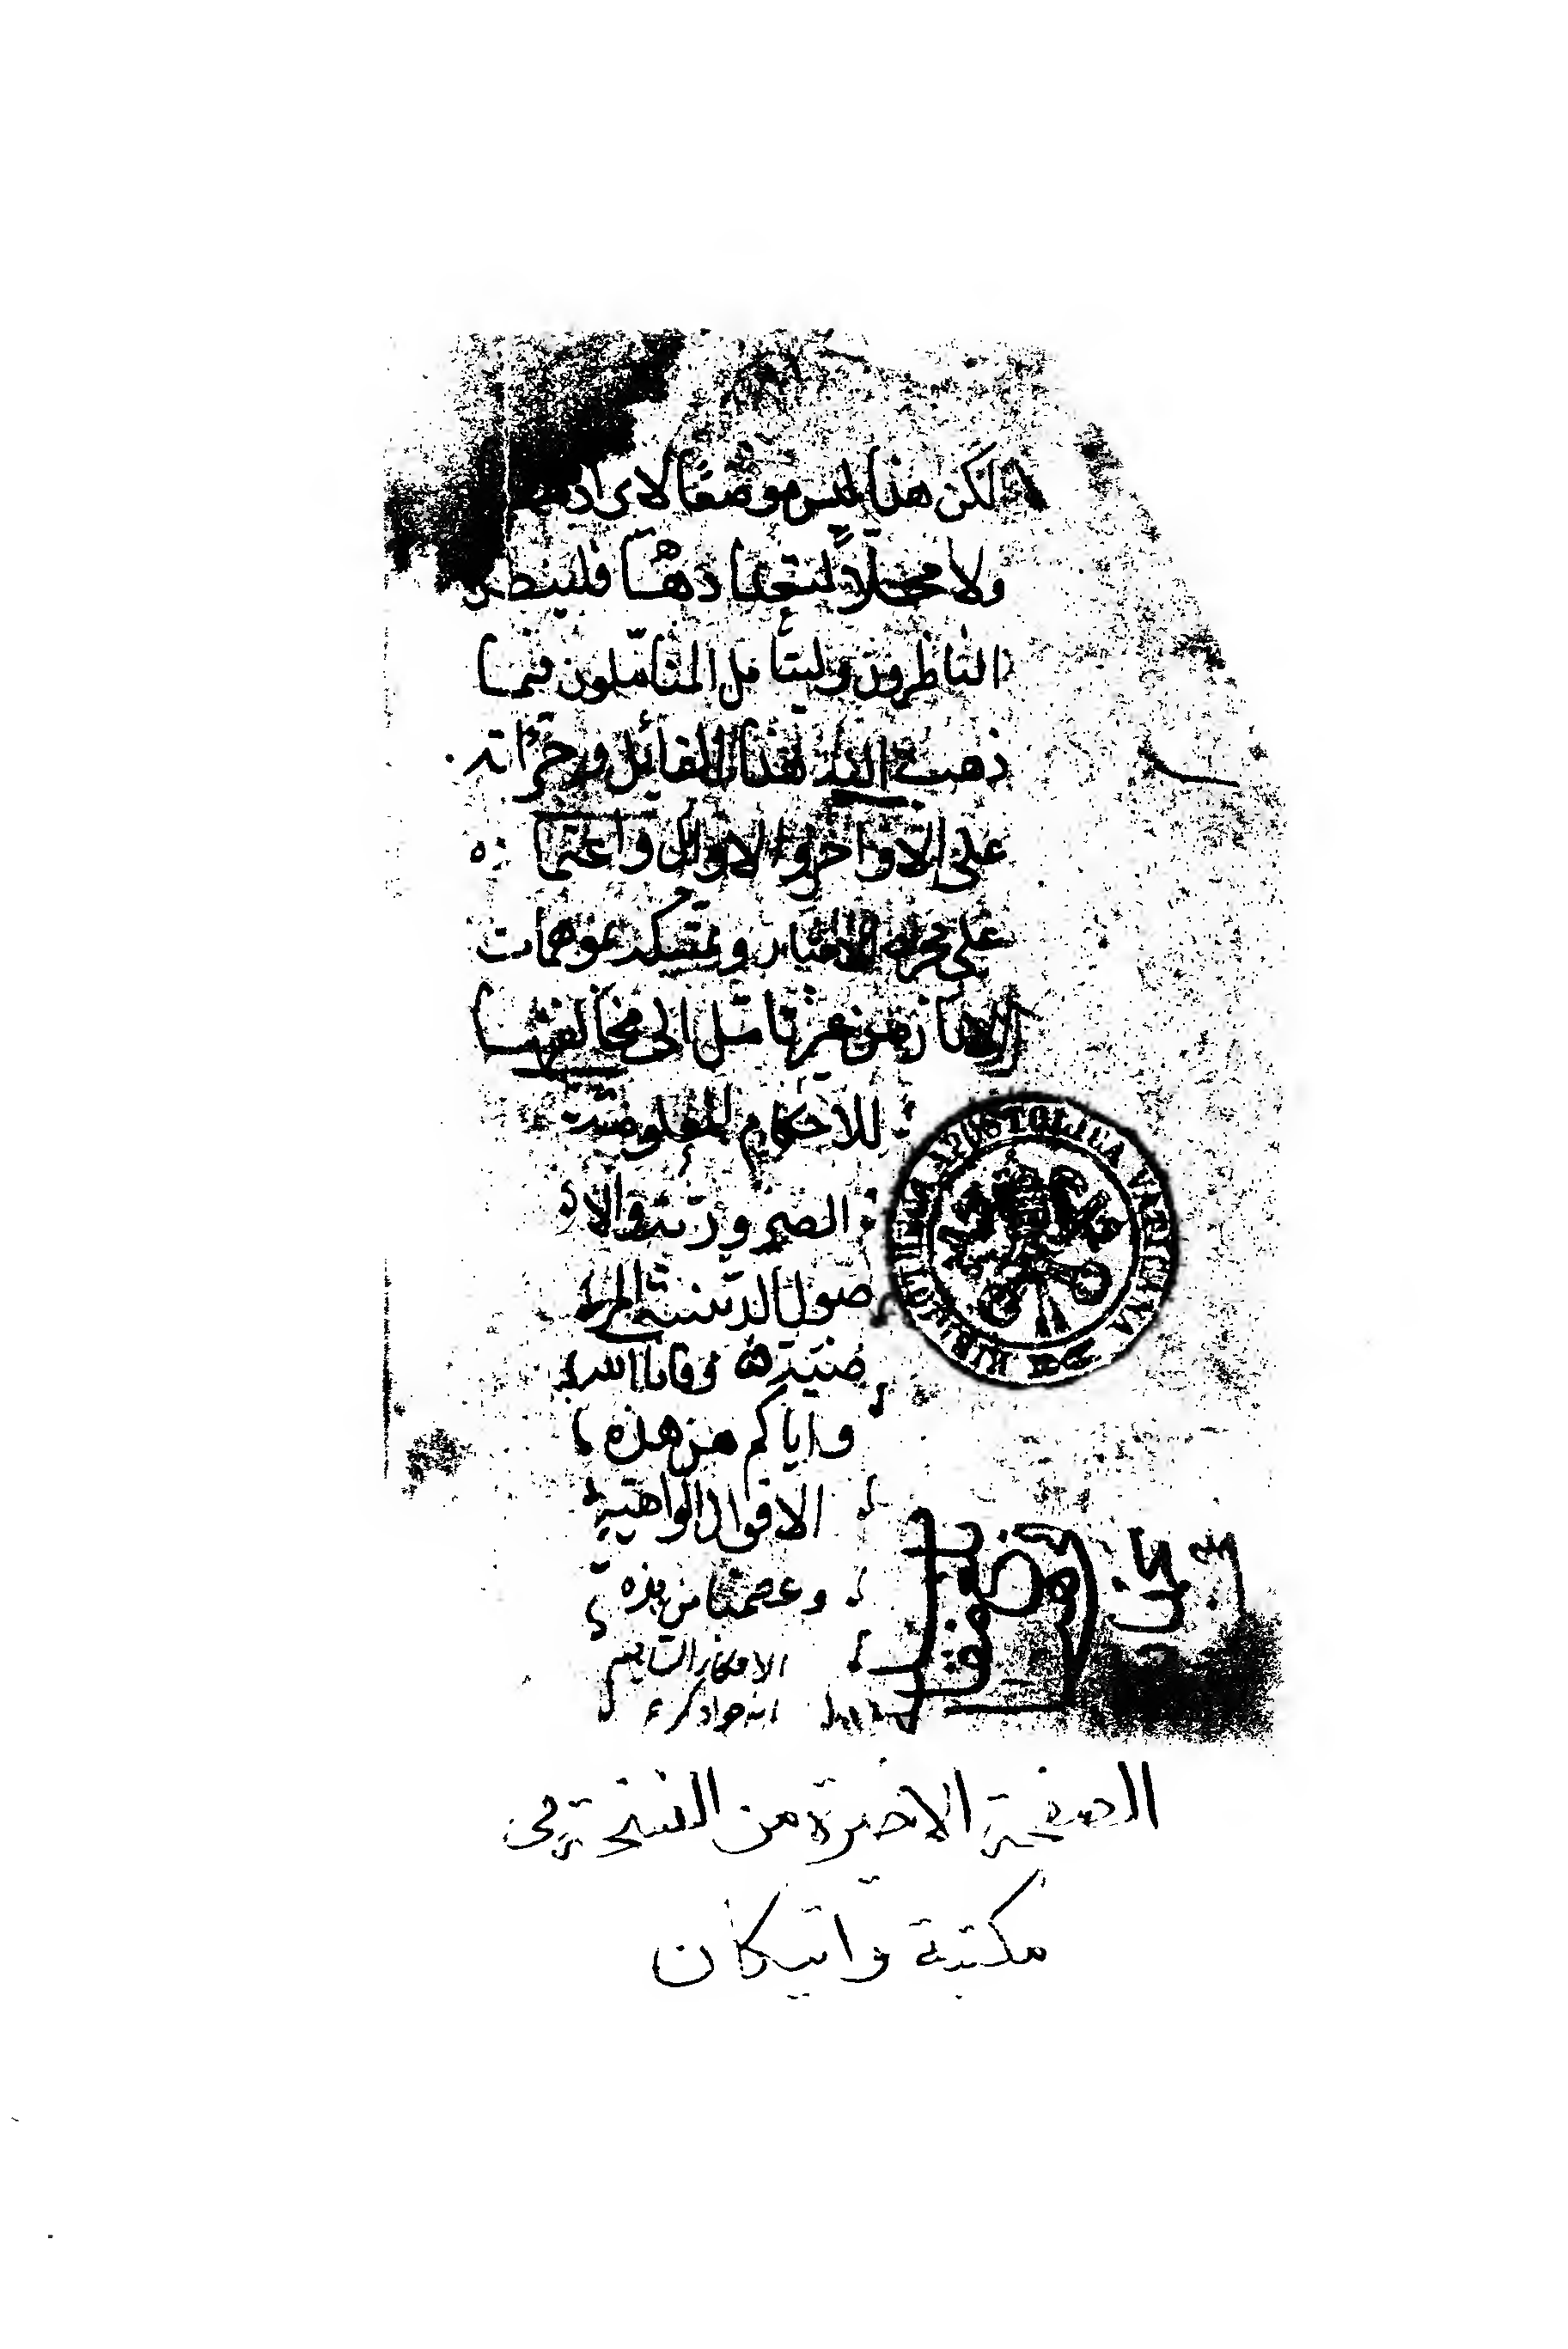 لكن هذا ليس موضعًا لايرادها
ولا محلّا لتعدادها فلينظر
الناظرون وليتأمل المتأمّلون فيما
ذهب اليه هذا القائل وجرأته
على الأواخر والاوائل واعتماده
على مجرد وتمسّكه بموهمات
من غير تأمّل الى مخالفتها
للاحكام المفروضة
الضروريّة والا
صول الدّينيّة المر
ضيّة وقانا الله
واياكم من هذه
الاقوال الواهية
وعصمنا من هذه
الافكار
انه جواد كريم
BIBLIOTHECA APOSTOLICA VATICANA
الصفحة الاخيرة من النسخة في
مكتبة واتيكان